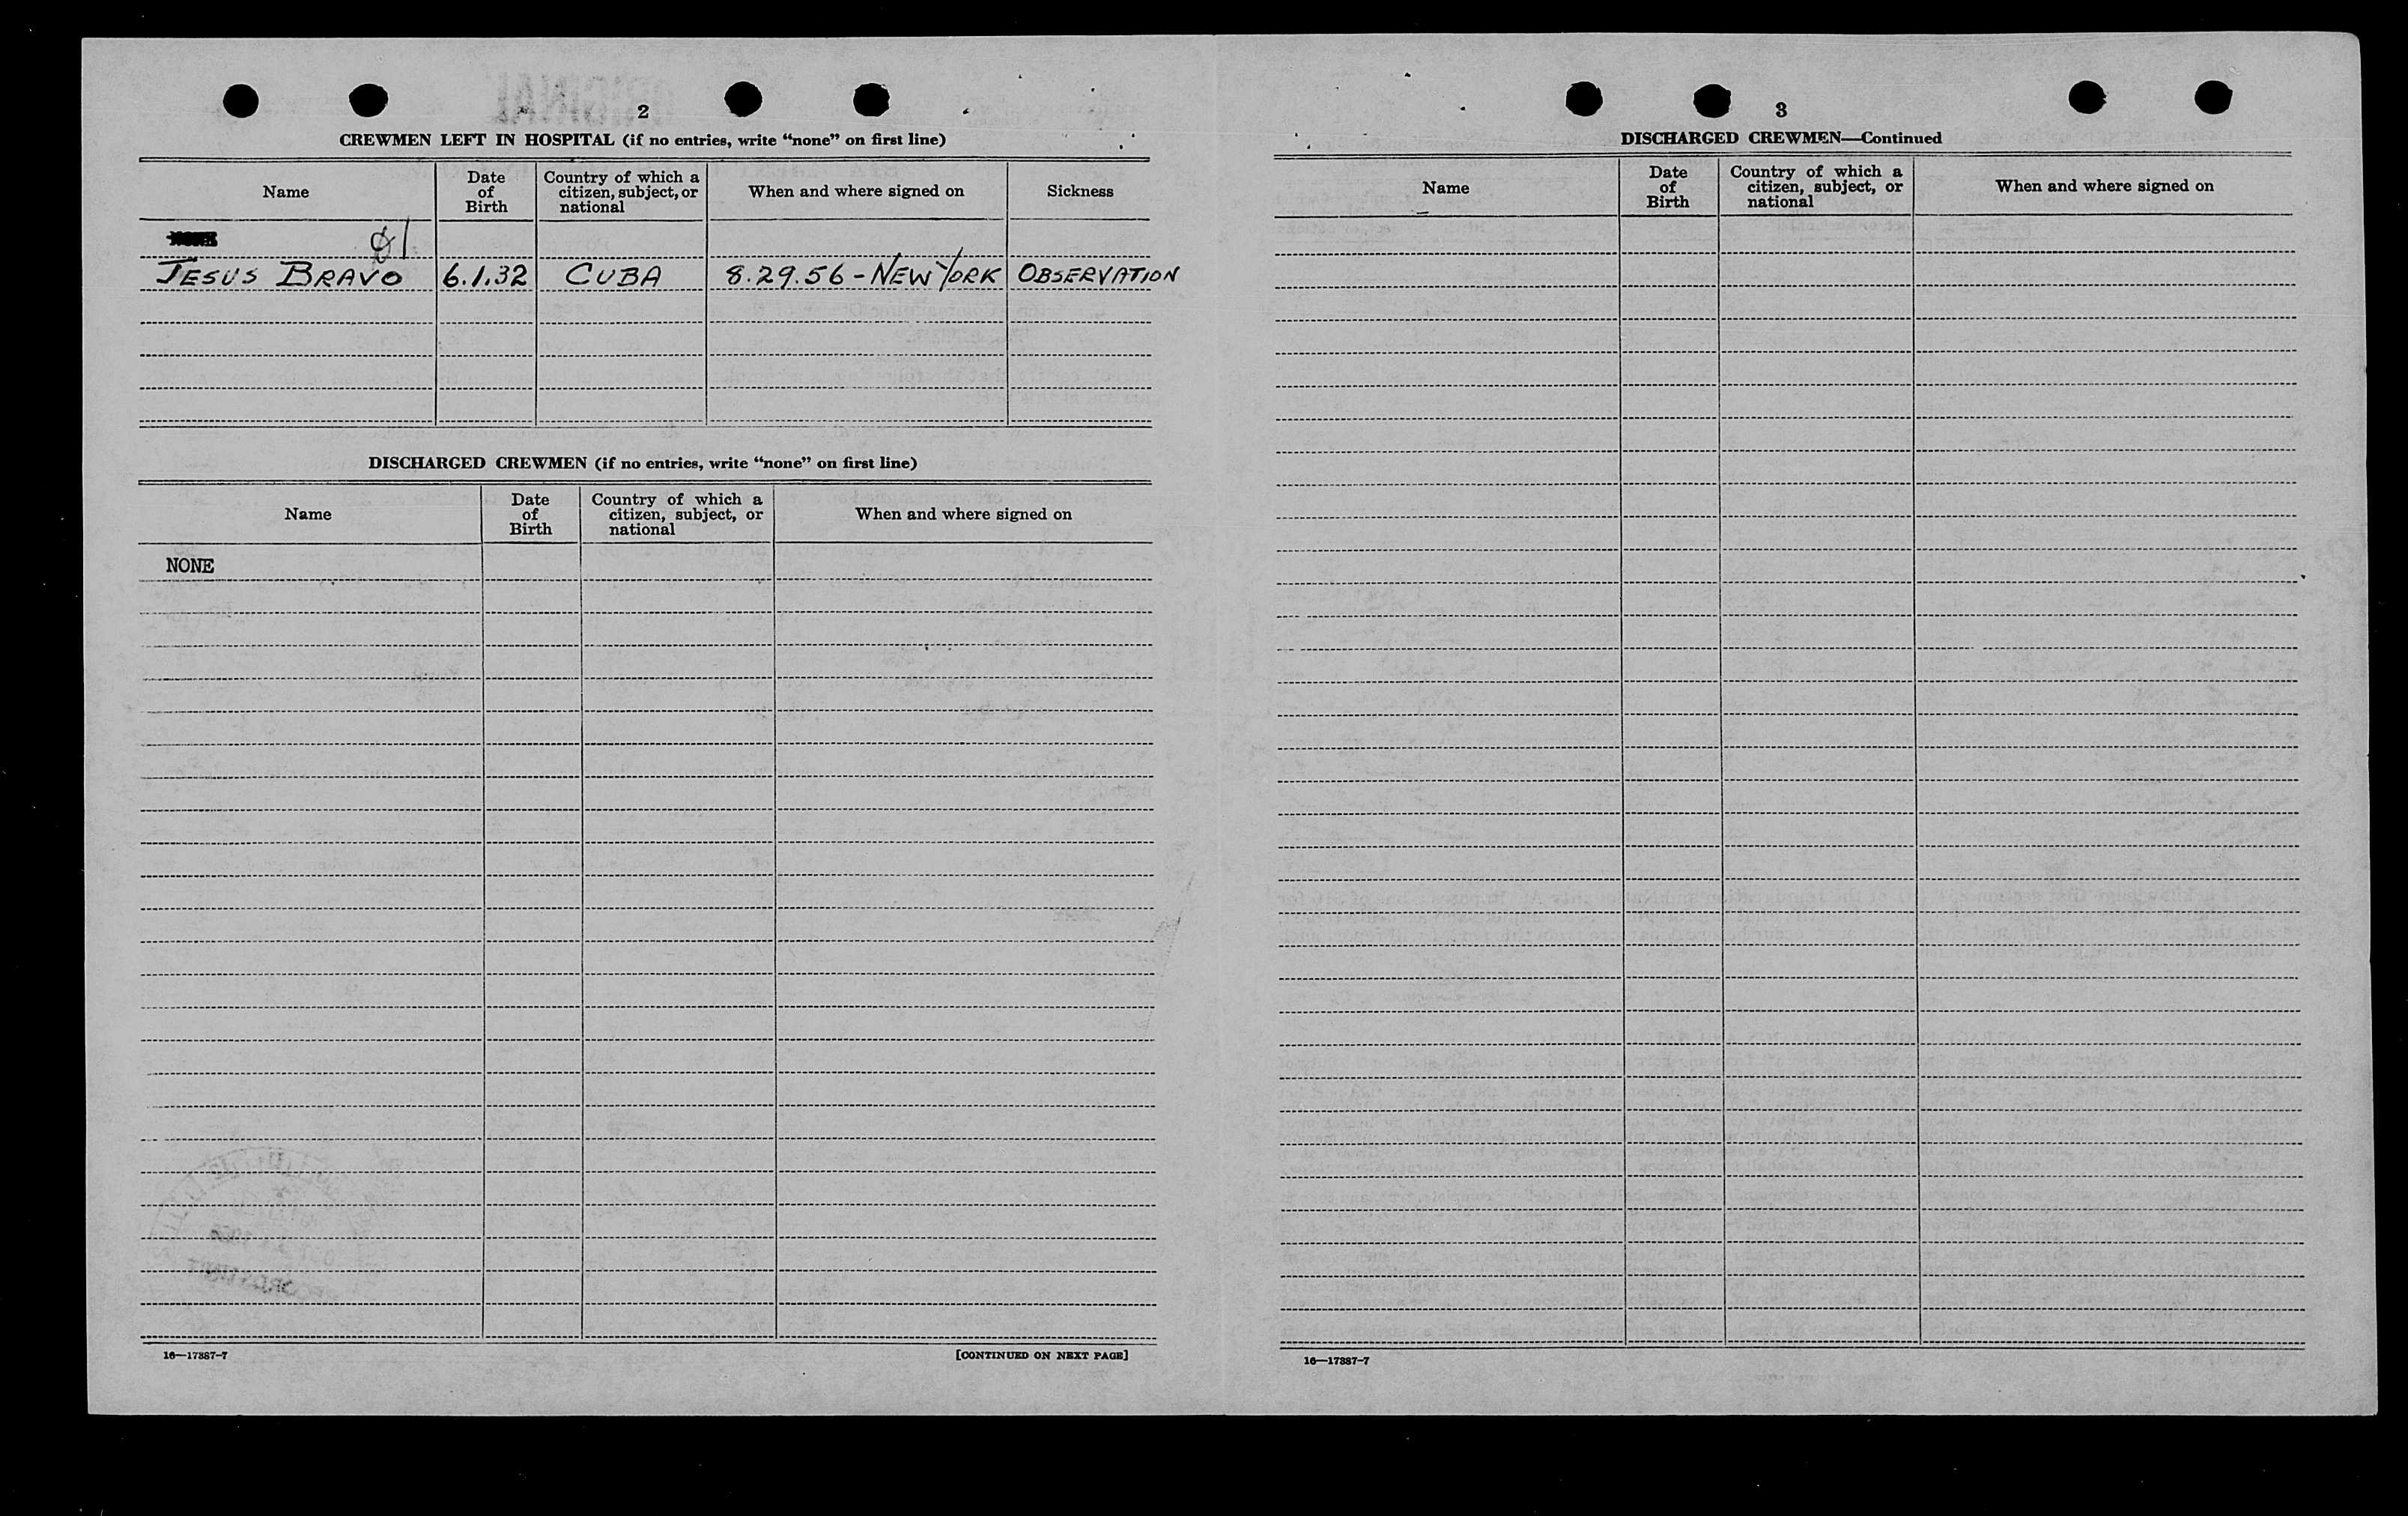 2
CREWMEN LEFT IN HOSPITAL (if no entries, write “none” on first line)
Name
Date of Birth
Country of which a citizen, subject, or national
When and where signed on
Sickness
JESUS BRAVO 6.1.32 CUBA 8.29.56 - NEW YORK OBSERVATION
DISCHARGED CREWMEN (if no entries, write “none” on first line)
Name
Date of Birth
Country of which a citizen, subject, or national
When and where signed on
NONE
16—17387-7
[CONTINUED ON NEXT PAGE]
3
DISCHARGED CREWMEN—Continued
Name
Date of Birth
Country of which a citizen, subject, or national
When and where signed on
16—17387-7